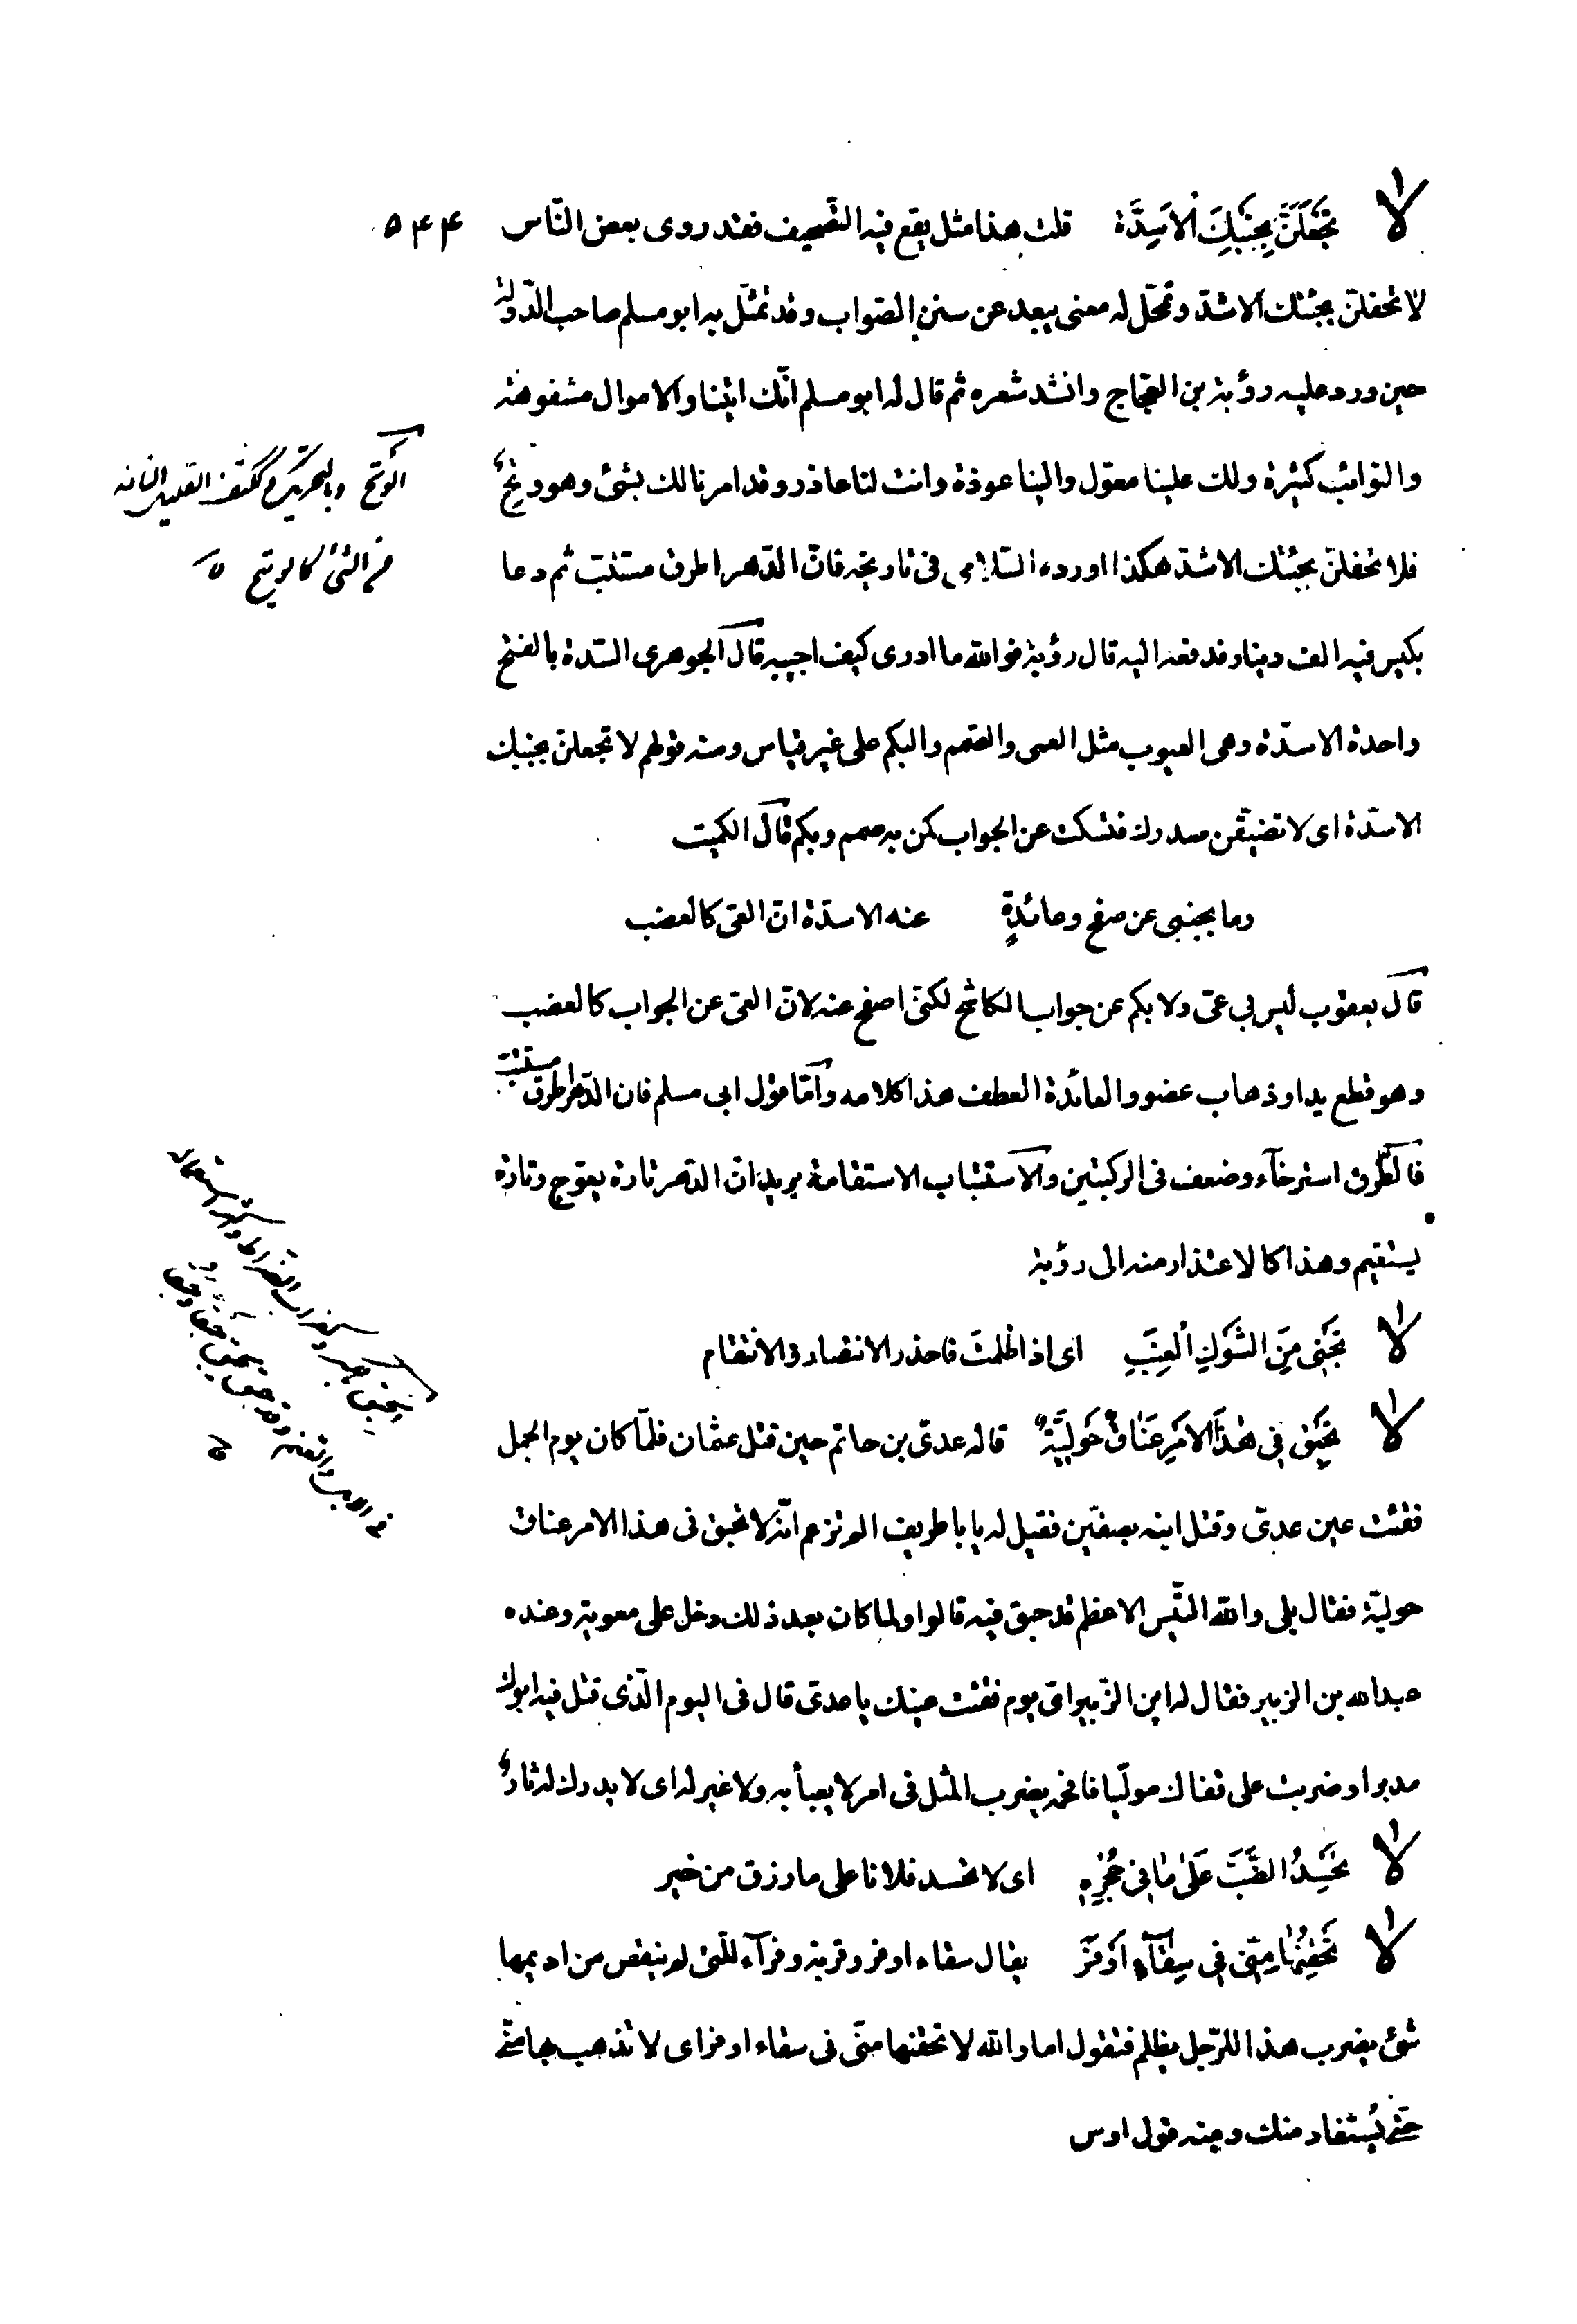 لا تَجْعَلَنَّ بِجَنْبِكَ الْاَسِدَّةَ قلت هذا مثل يقع فيه التصحيف فقد روى بعض النّاس ۵۴۴
لا تحفلنّ بجئتك الاشدّ وتمحّل له معنى يبعد عن سنن الصّواب وقد تمثّل به ابو مسلم صاحب الدّولة
حين ورد عليه رؤبة بن العجّاج وانشد شعره ثم قال له ابو مسلم انّك اتيتنا والاموال مشفوهة
والنوائب كثيرة ولك علينا معوّل والينا عودة وانت لنا عاذر وقد امرنا لك بشئ وهو وتح
فلا تحفلنّ بجئتك الاشدّ هكذا اورده السّلامى فى تاريخه فانّ الدّهر اطرق مستتبّ ثم دعا
بكيس فيه الف دينار فدفعه اليه قال رؤبة فوالله ما ادرى كيف اجيبه قال الجوهرى السّدة بالفتح
واحدة الاسدّة وهى العيوب مثل العمى والصّمم والبكم على غير قياس ومنه قولهم لا تجعلنّ بجنبك
الاسدّة اى لا تضيّقن صدرك فتسكت عن الجواب كمن به صمم وبكم قال الكميت
وما بجنبى عن صفح وعائدةٍ عنه الاسدّة انّ العىّ كالعضب
قال يعقوب ليس بى عىّ ولا بكم عن جواب الكاشح لكنّى اصفح عنه لانّ العىّ عن الجواب كالعضب
وهو قطع يد او ذهاب عضو والعائدة العطف هذا كلامه وامّا قول ابى مسلم فان الدّهر اطرق مستتبّ
فالطّرق استرخآء وضعف فى الركبتين والاستتباب الاستقامة يريد انّ الدّهر تارة يعوّج وتارة
يستقيم وهذا كالاعتذار منه الى رؤبة
لا تَجْنِى مِنَ الشَّوْكِ الْعِنَبَ اى اذا ظلمت فاحذر الانتصار والانتقام
لا تَحْبِقُ فِى هٰذَا الْاَمْرِ عَنَاقٌ حَوْلِيَّةٌ قاله عدىّ بن حاتم حين قتل عثمان فلمّا كان يوم الجمل
فقئت عين عدىّ وقتل ابنه بصفّين فقيل له يا با طريف الم تزعم انّه لا تحبق فى هذا الامر عناق
حوليّة فقال بلى والله التّيس الاعظم قد حبق فيه قالوا ولما كان بعد ذلك دخل على معوية وعنده
عبدالله بن الزبير فقال له ابن الزّبير اىّ يوم فقئت عينك يا عدىّ قال فى اليوم الّذى قتل فيه ابوك
مدبرا وضربت على قفاك مولّيا فافحمه يضرب المثل فى امر لا يعبأ به ولا غير له اى لا يدرك له ثار
لا تَحْسُدِ الضَّبَّ عَلَىٰ مَا فِى جُحْرِهِ اى لا تحسد فلانا على ما رزق من خير
لا تَحْقِنُهَا مِنِّى فِى سِقَآءٍ اَوْفَرَ يقال سقاء اوفر وقربة وفرآء للّتى لم ينقص من اديمها
شئ يضرب هذا للرّجل يظلم فتقول اما والله لا تحقنها منّى فى سقاء اوفر اى لا تذهب بها منّى
حتّى يُستقاد منك ومنه قول اوس
الوتح وبالتحريك وككتف القليل التافه
من الشئ كالوتيح